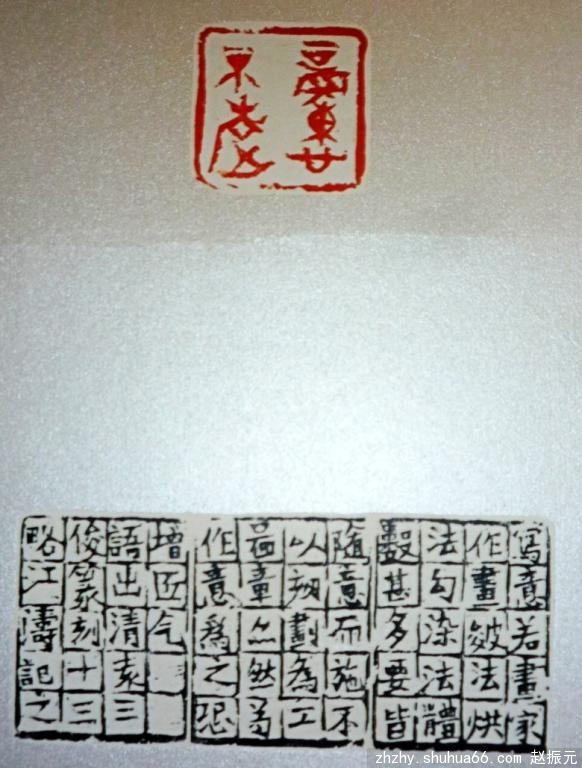 寫意若畫家
作畫皴法烘
法勾染法體
數甚多要皆
隨意而施不
以刻劃為工
啚章亦然苟
作意爲之恐
增匠气
語出清袁三
俊篆刻十三
略江濤記之
zhzhy.shuhua66.com 赵振元